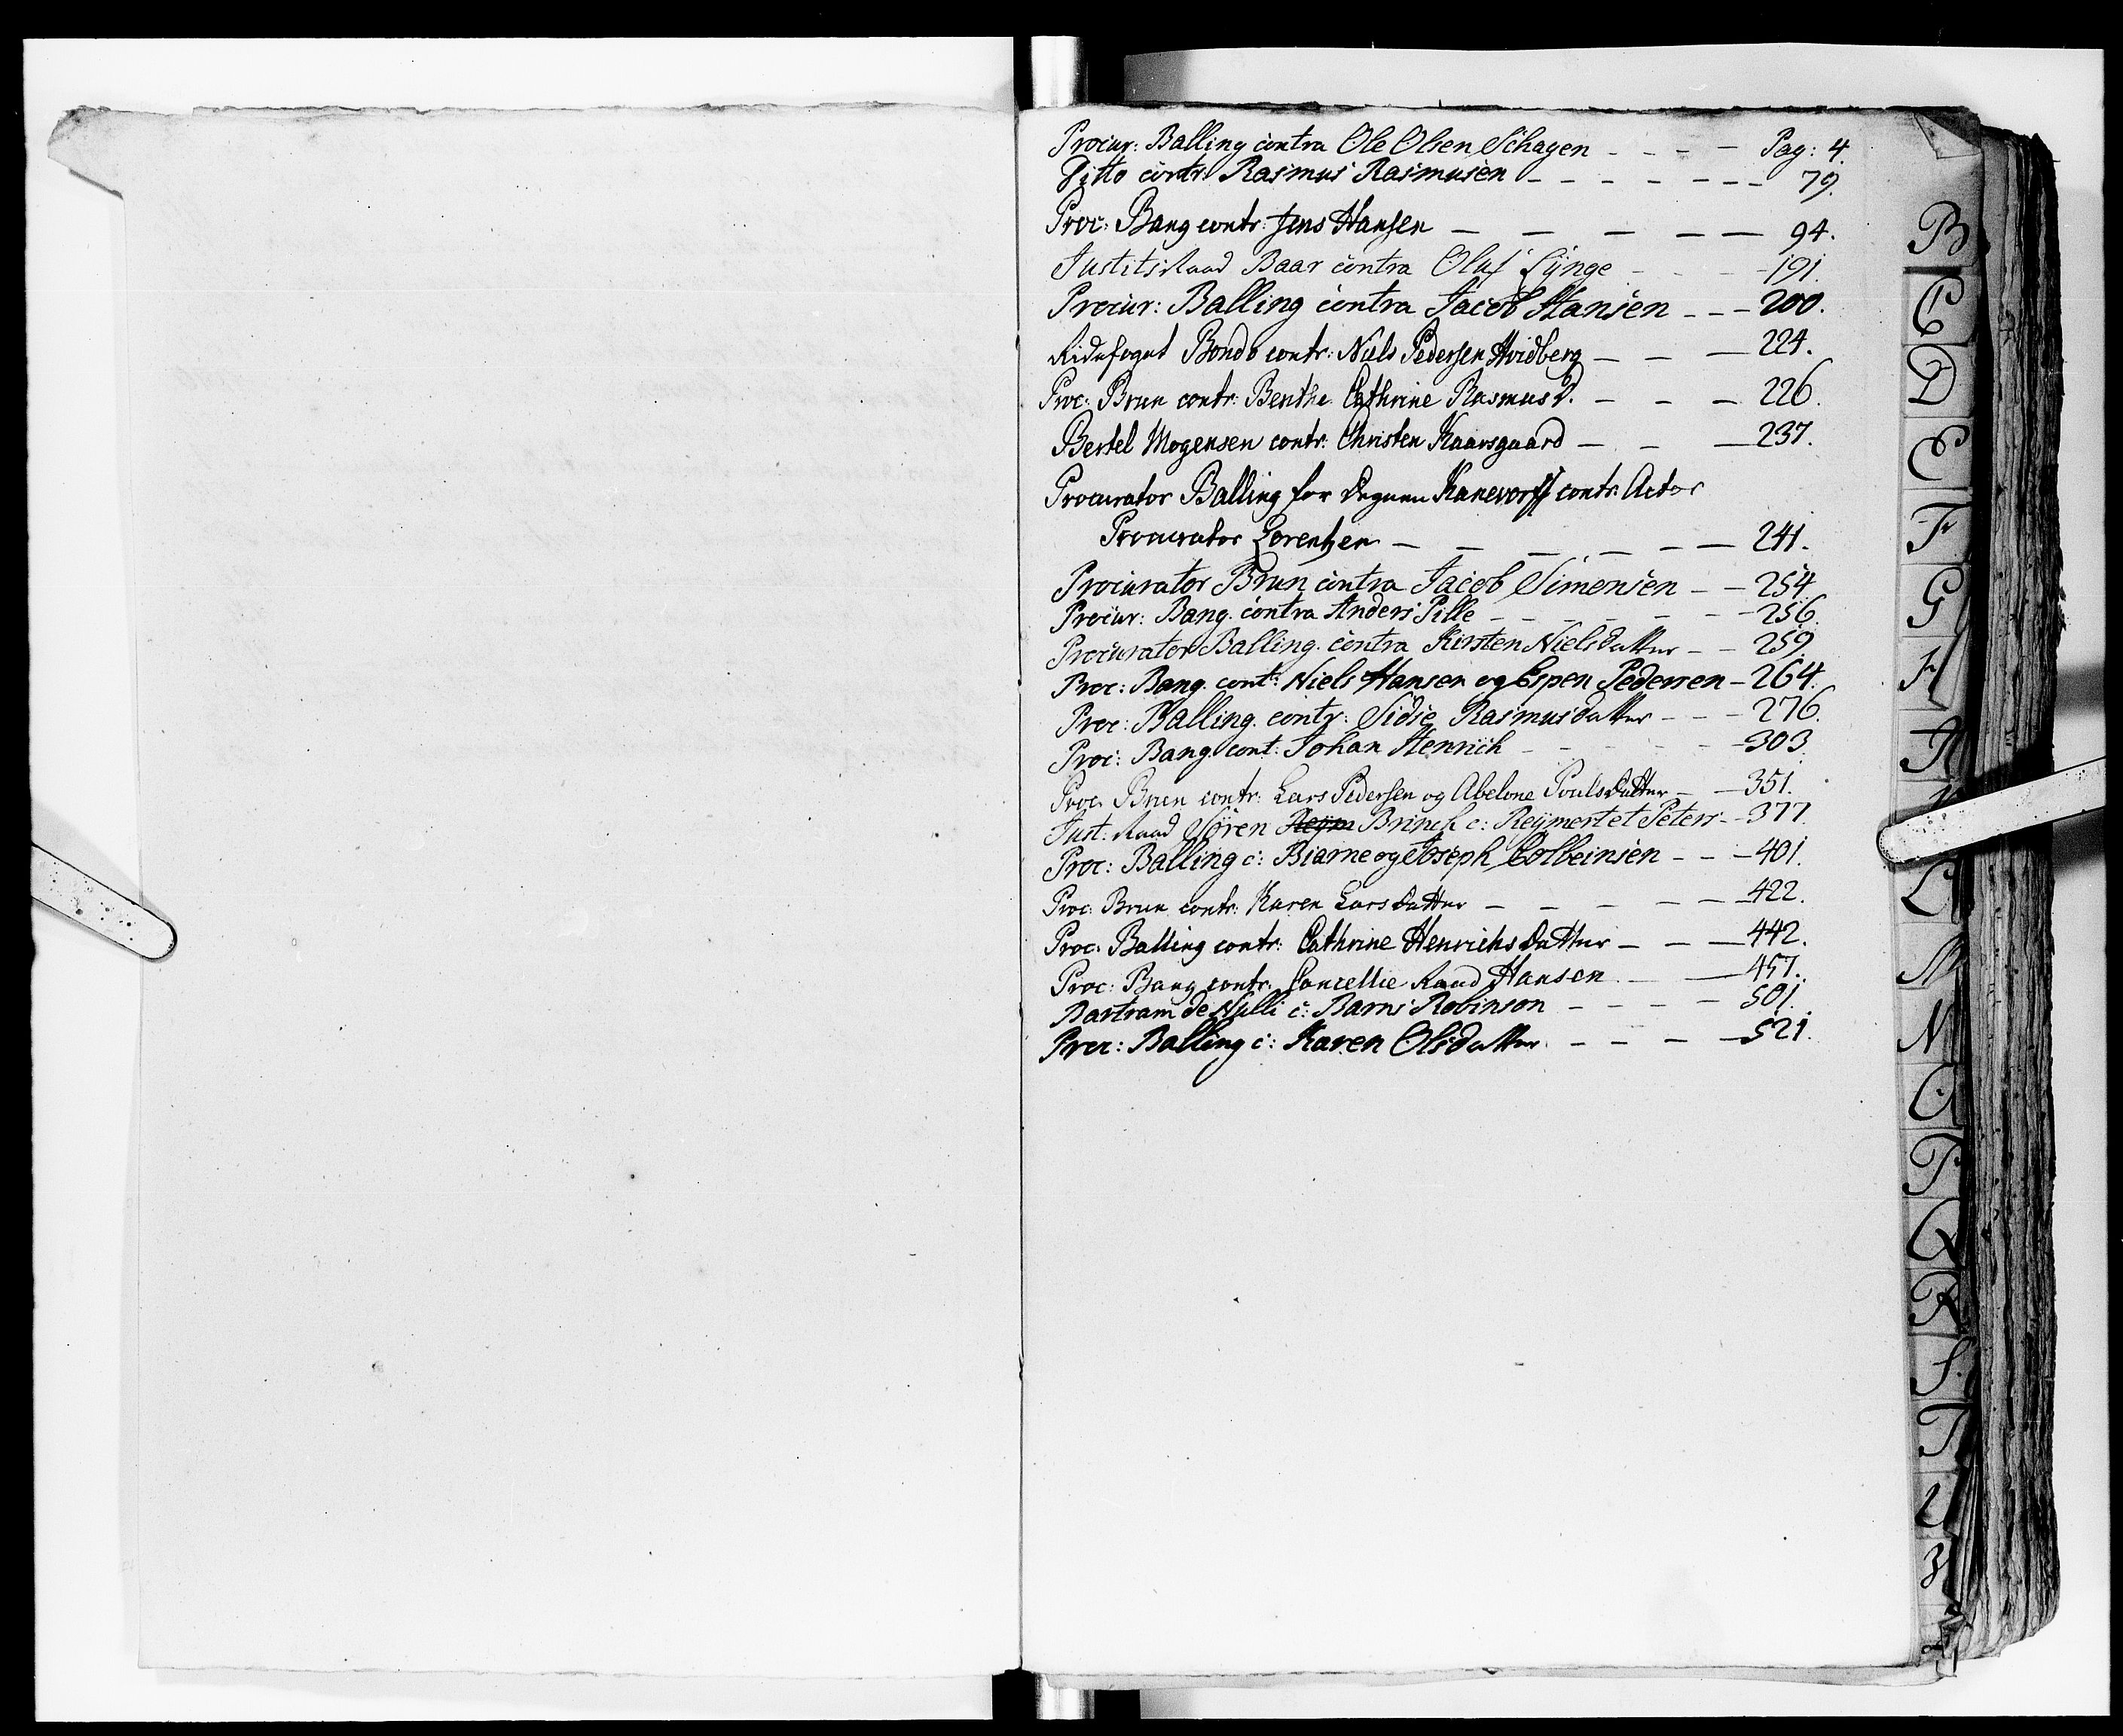 Procur: Balling contra Ole Olsen Schagen - - - - Pag: 4.
Ditto contr: Rasmus Rasmusen - - - - - - - 79.
Proc: Bang contr: Jens Hansen - - - - - 94.
JustitsRaad Baar contra Oluf Lÿnge - - - 191.
Procur: Balling contra Jacob Hansen - - - 200.
Ridefoget Bondo contr: Niels Pedersen Hvidberg - - - 224.
Proc: Brun contr: Benthe Cathrine RasmusD. - - - 226.
Bertel Mogensen contr: Christen Kaarsgaard - - - 237.
Procurator Balling for Degnen Kanevorff contr: Actor
Procurator Lorentzen - - - - - - 241.
Procurator Brun contra Jacob Simonsen - - 254.
Procur: Bang contra Anders Pille - - - - - 256.
Procurator Balling contra Kirsten Nielsdatter - - 259.
Proc: Bang cont: Niels Hansen og Espen Pedersen - 264.
Proc: Balling contr: Sidse Rasmusdatter - - - 276.
Proc: Bang cont: Johan Henrich - - - - - 303.
Proc: Brun contr: Lars Pedersen og Abelone Poulsdatter - - 351.
Just: Raad Sören Reÿm Brinch c: Reÿmert et Peters - - 377.
Proc: Balling c: Biarne og Joseph Colbeinsen - - - 401.
Proc: Brun contr: Karen Larsdatter - - - - - - 422.
Proc: Balling contr: Cathrine Henrichsdatter - - - 442.
Proc: Bang contr: Cancellie Raad Hansen - - 457.
Bartram de Nülli c: Barns Robinson - - - - 501.
Proc: Balling c: Karen Olsdatter - - - - - 521.
B
C
D
E
F
G
H
L
M
N
O
P
Q
R
S
T